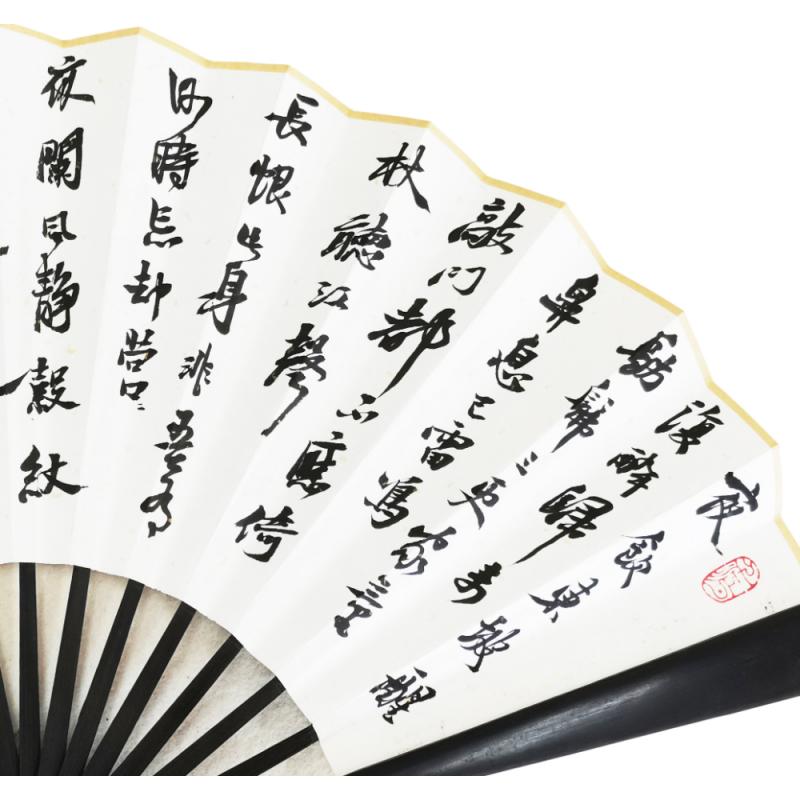 夜飲東坡醒
復醉歸来
髣髴三更家童
鼻息已雷鳴
敲門都不應倚
杖聽江聲
長恨此身非吾有
何時忘却營〻
夜闌風靜縠紋